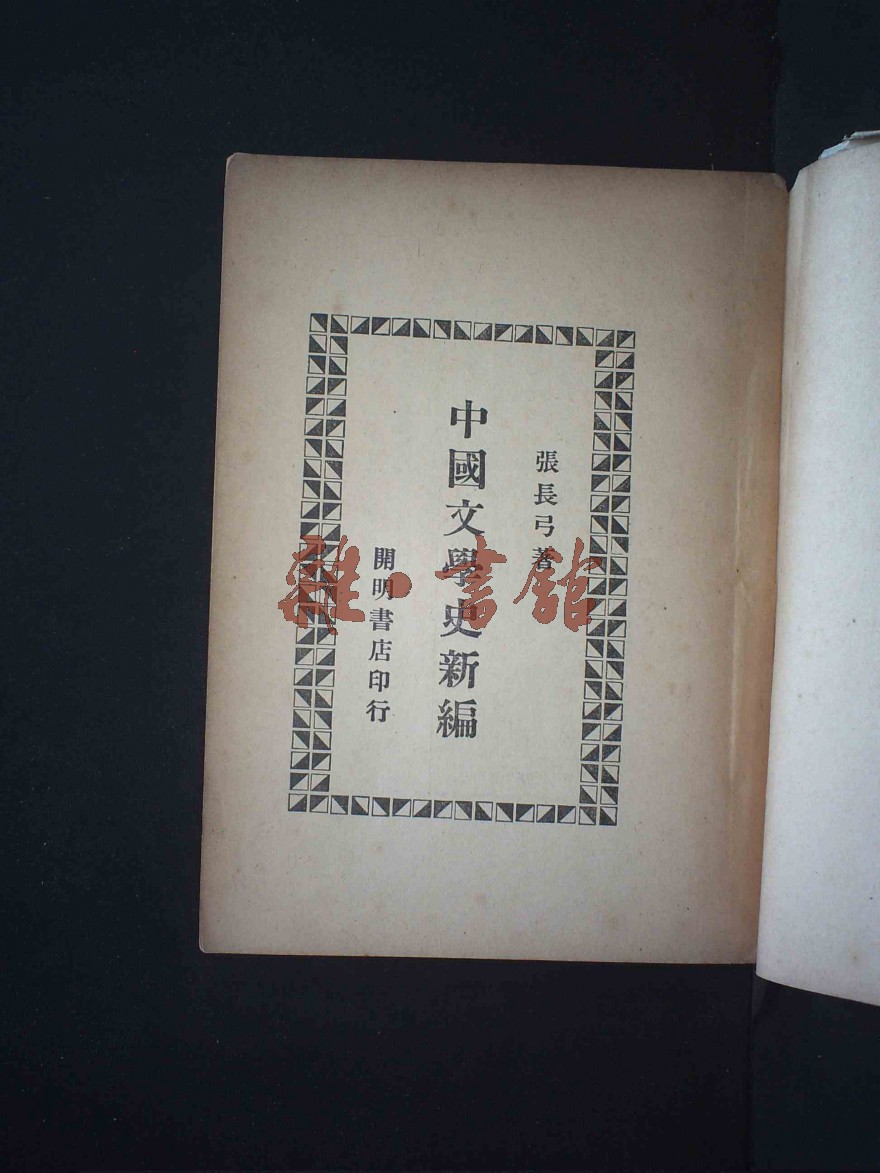 張長弓著
中國文學史新編
開明書店印行
雜·書館